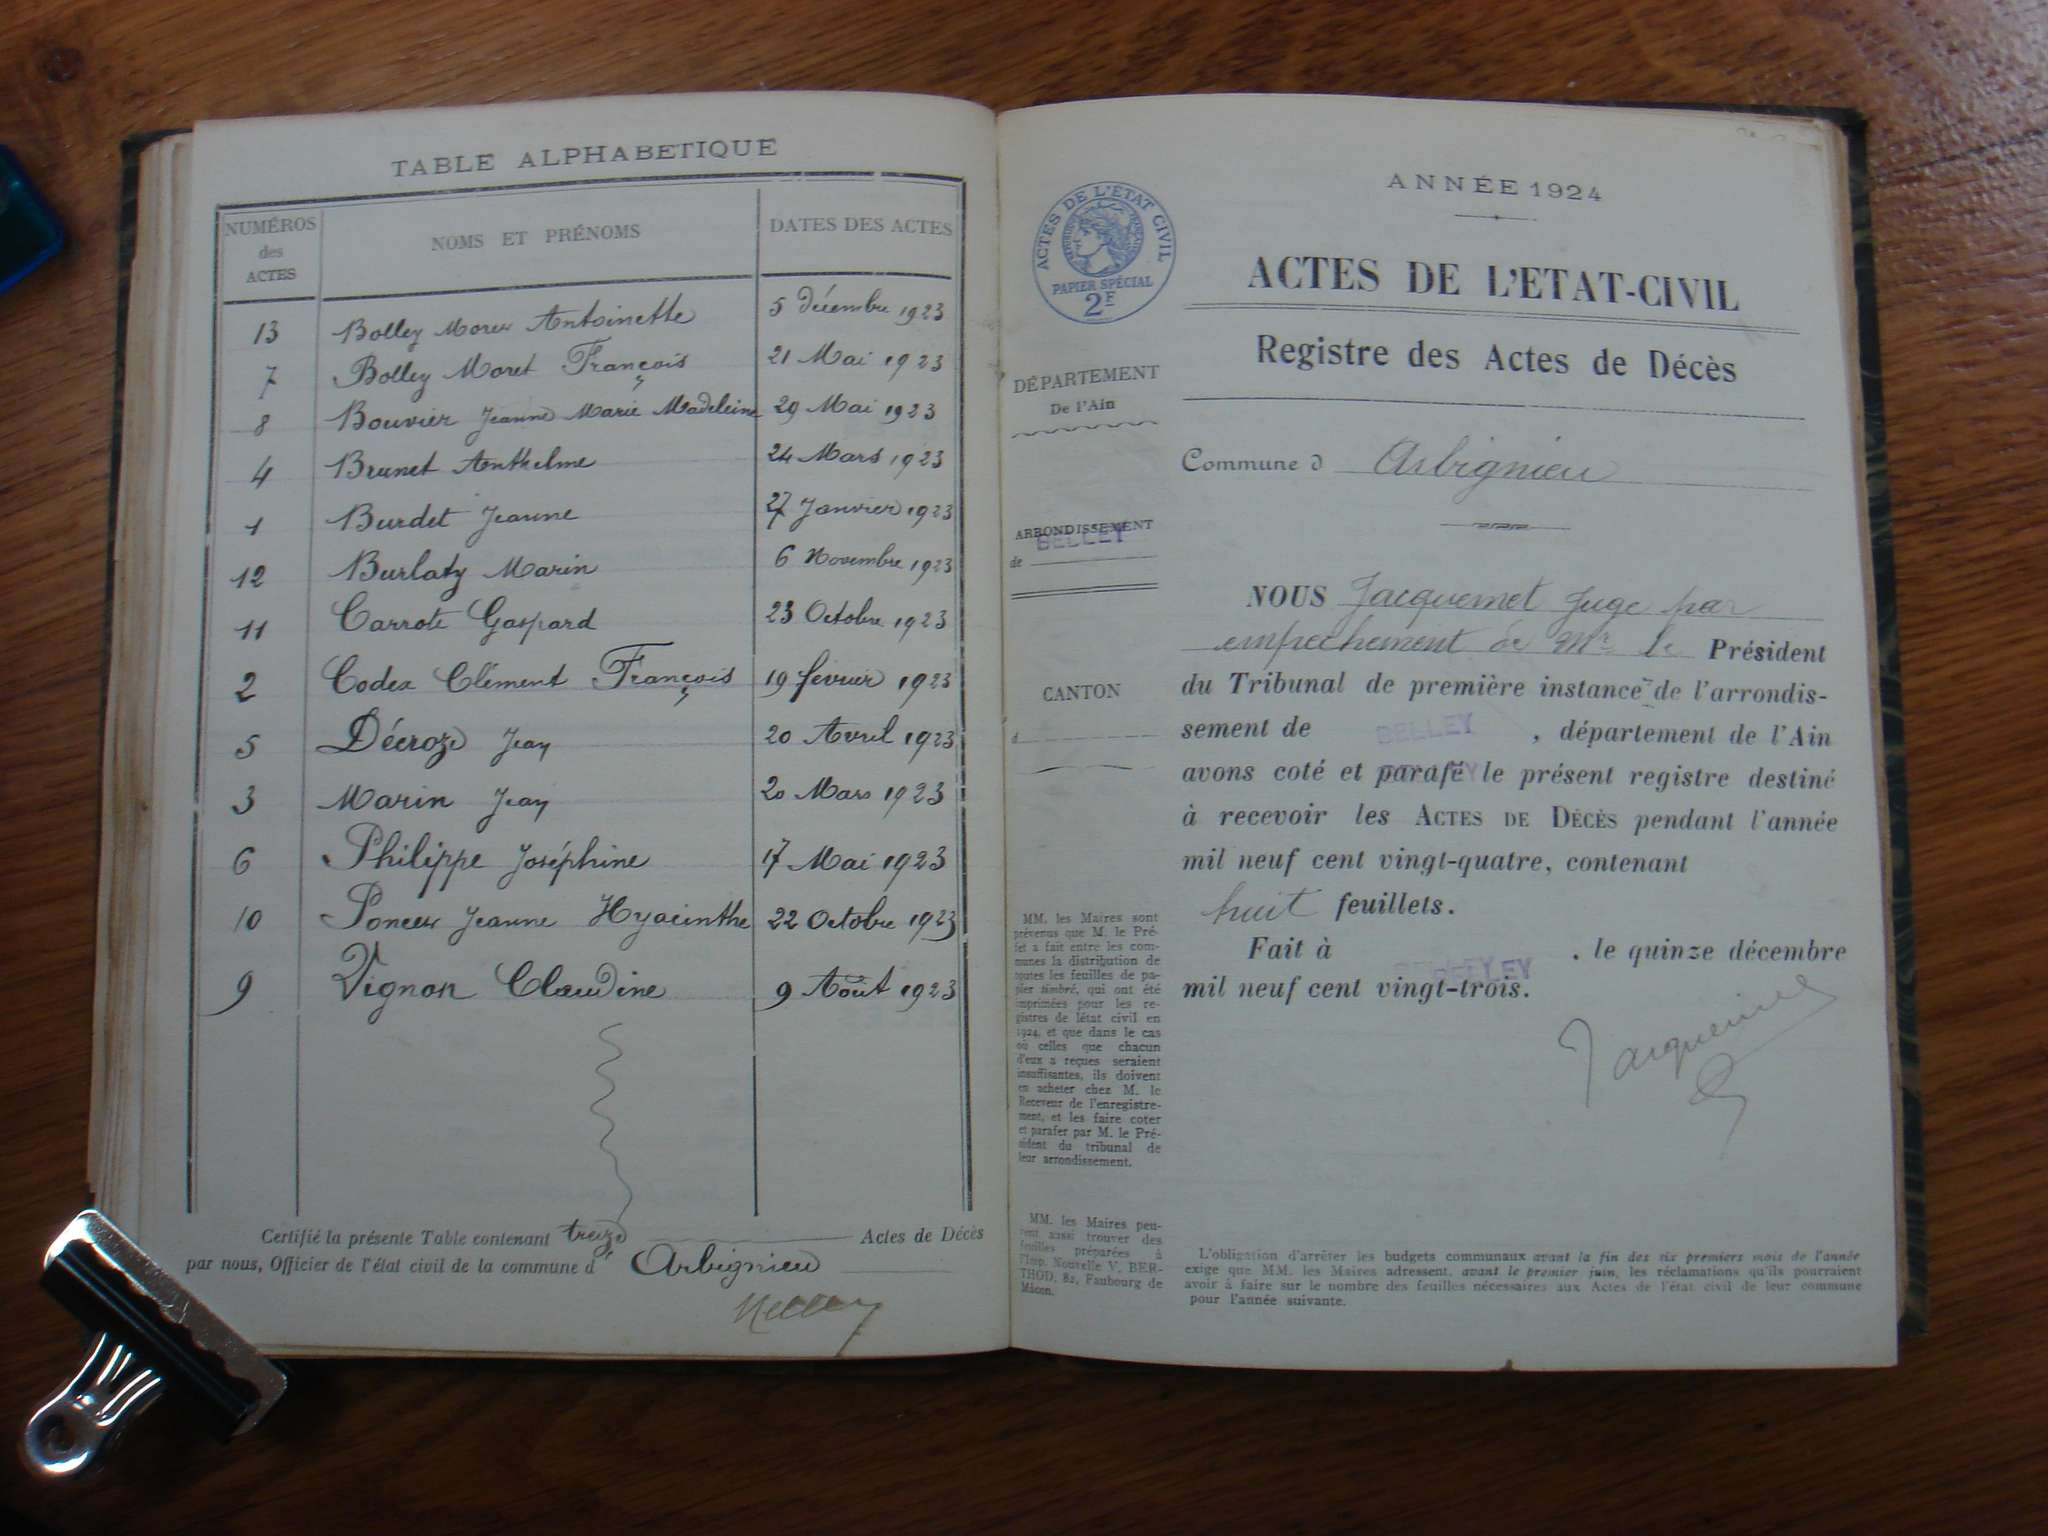 TABLE ALPHABETIQUE
NUMÉROS des ACTES
NOMS ET PRÉNOMS
DATES DES ACTES
13 Bolley Morex Antoinette 5 décembre 1923
7 Bolley Moret François 21 Mai 1923
8 Bouvier Jeanne Marie Madeleine 29 Mai 1923
4 Brunet Anthelme 24 Mars 1923
1 Burdet Jeanne 27 Janvier 1923
12 Burlaty Marin 6 Novembre 1923
11 Carrote Gaspard 23 Octobre 1923
2 Codex Clément François 19 février 1923
5 Décroze Jean 20 Avril 1923
3 Marin Jean 20 Mars 1923
6 Philippe Joséphine 17 Mai 1923
10 Poncex Jeanne Hyacinthe 22 Octobre 1923
9 Vignon Claudine 9 Août 1923
Certifié la présente Table contenant treize Actes de Décès
par nous, Officier de l'état civil de la commune d' Arbignieu
ACTES DE L'ÉTAT CIVIL
RÉPUBLIQUE FRANÇAISE
PAPIER SPÉCIAL
2F
DÉPARTEMENT
De l'Ain
ARRONDISSEMENT
de BELLEY
CANTON
d
MM. les Maires sont
prévenus que M. le Pré-
fet a fait entre les com-
munes la distribution de
toutes les feuilles de pa-
pier timbré, qui ont été
imprimées pour les re-
gistres de létat civil en
1924, et que dans le cas
où celles que chacun
d'eux a reçues seraient
insuffisantes, ils doivent
en acheter chez M. le
Receveur de l'enregistre-
ment, et les faire coter
et parafer par M. le Pré-
sident du tribunal de
leur arrondissement.
MM. les Maires peu-
vent aussi trouver des
feuilles préparées à
l'Imp. Nouvelle V. BER-
THOD, 82, Faubourg de
Mâcon.
ANNÉE 1924
ACTES DE L'ETAT-CIVIL
Registre des Actes de Décès
Commune d Arbignieu
NOUS Jacquemet Juge par
empechement de Mr le Président
du Tribunal de première instance de l'arrondis-
sement de BELLEY, département de l'Ain
avons coté et parafé le présent registre destiné
à recevoir les ACTES DE DÉCÈS pendant l'année
mil neuf cent vingt-quatre, contenant
huit feuillets.
Fait à BELLEY, le quinze décembre
mil neuf cent vingt-trois.
Jacquemet
L'obligation d'arrêter les budgets communaux avant la fin des six premiers mois de l'année
exige que MM. les Maires adressent, avant le premier juin, les réclamations qu'ils pourraient
avoir à faire sur le nombre des feuilles nécessaires aux Actes de l'état civil de leur commune
pour l'année suivante.